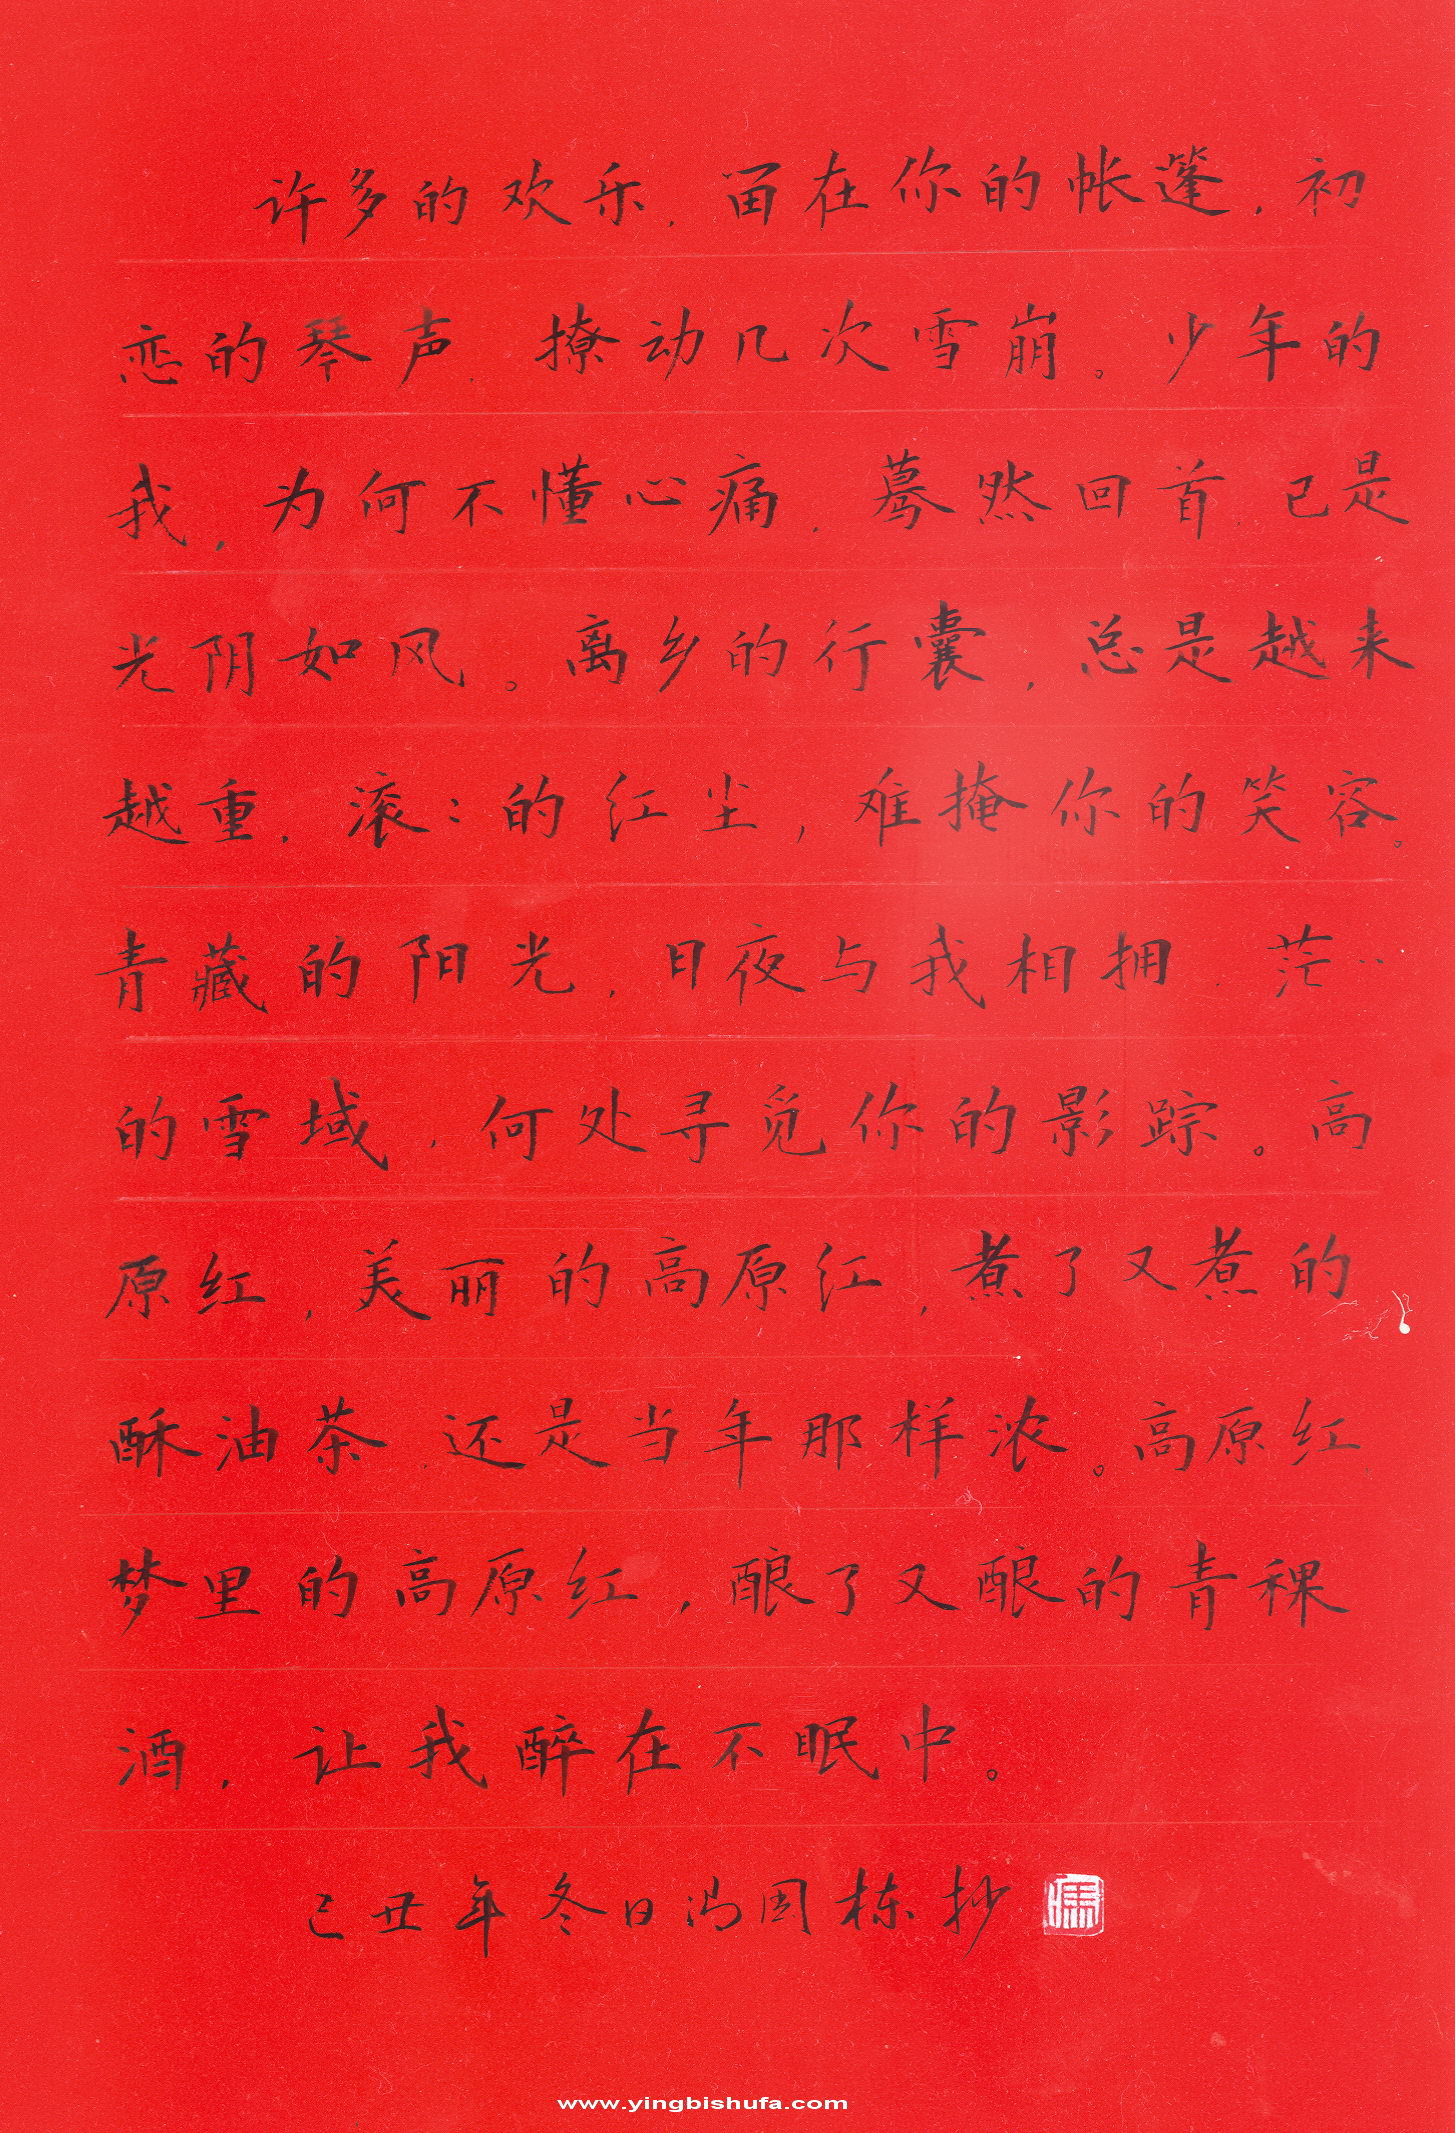 许多的欢乐，留在你的帐篷，初
恋的琴声，撩动几次雪崩。少年的
我，为何不懂心痛，蓦然回首，已是
光阴如风。离乡的行囊，总是越来
越重，滚：的红尘，难掩你的笑容。
青藏的阳光，日夜与我相拥，茫：
的雪域，何处寻觅你的影踪。高
原红，美丽的高原红，煮了又煮的
酥油茶，还是当年那样浓。高原红，
梦里的高原红，酿了又酿的青稞
酒，让我醉在不眠中。
己丑年冬日冯国栋抄
www.yingbishufa.com